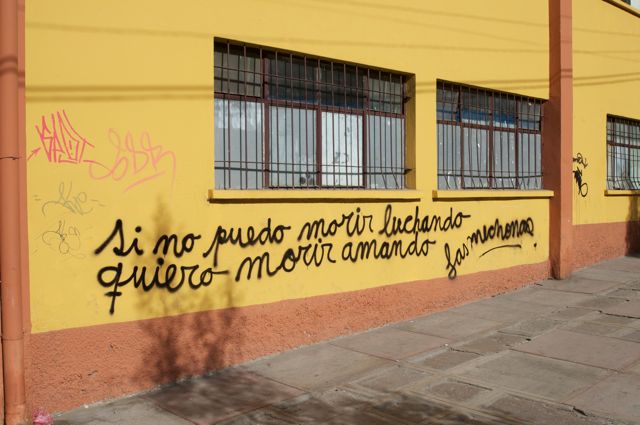 si no puedo morir luchando
quiero morir amando
Las mechonas.